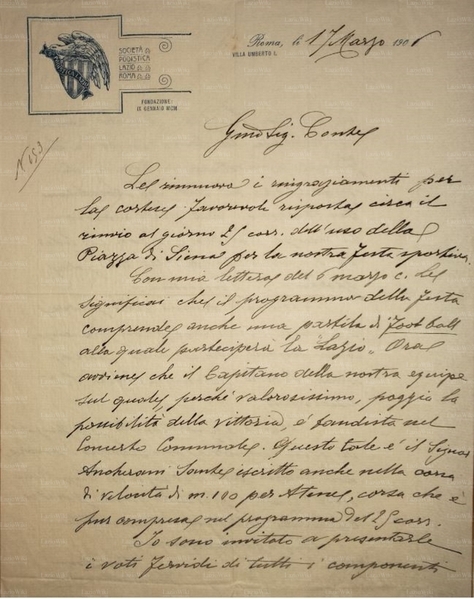 SOCIETÀ
PODISTICA
LAZIO
ROMA
FONDAZIONE:
IX GENNAIO MCM
Roma, li 17 Marzo 1906
VILLA UMBERTO I.
N 153
Gmo Sig. Conte
Le rinnuovo i ringraziamenti per
la cortese favorevole risposta circa il
rinvio al giorno 25 corr. dell'uso della
Piazza di Siena per la nostra festa sportiva.
Con mia lettera del 6 marzo c. Le
significai che il programma della festa
comprende anche una partita di Foot Ball
alla quale parteciperà la "Lazio". Ora
avviene che il Capitano della nostra equipe
sul quale, perchè valorosissimo, poggia la
possibilità della vittoria, è bandista nel
Concerto Comunale. Questo tale è il Signor
Ancherani Sante iscritto anche nella corsa
di velocità di m. 100 per Atene, corsa che è
pur compresa nel programma del 25 corr.
Io sono invitato a presentarle
i voti fervidi di tutti i componenti